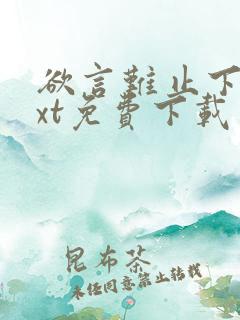 欲言難止下
xt免費下載
昆布茶
未经同意禁止转载